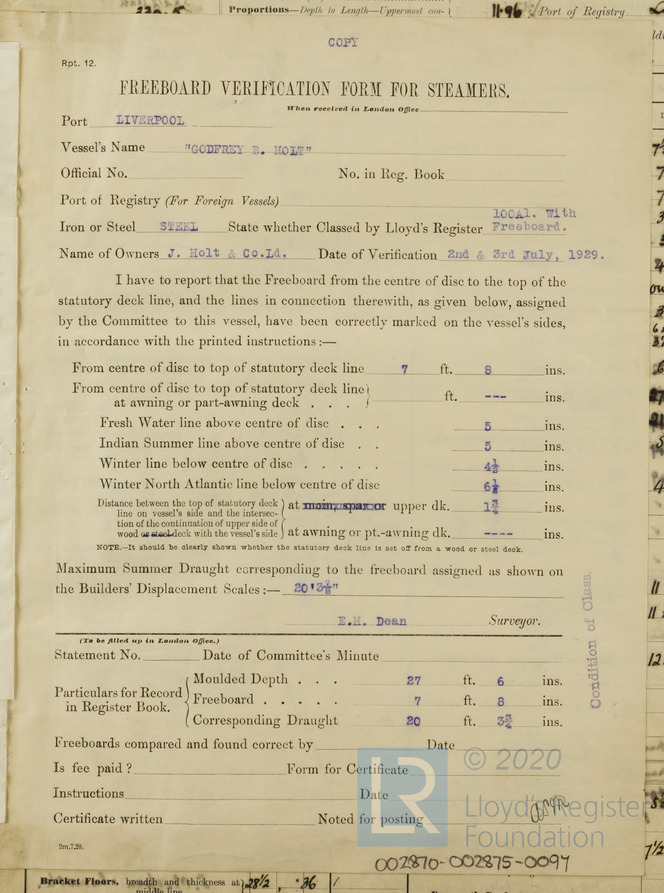 Proportions—Depth to Length—Uppermost con- 11·96 Port of Registry
COPY
Rpt. 12.
FREEBOARD VERIFICATION FORM FOR STEAMERS.
When received in London Office
Port LIVERPOOL
Vessel's Name "GODFREY B. HOLT"
Official No. No. in Reg. Book
Port of Registry (For Foreign Vessels)
100A1. With
Iron or Steel STEEL State whether Classed by Lloyd's Register Freeboard.
Name of Owners J. Holt & Co.Ld. Date of Verification 2nd & 3rd July, 1929.
I have to report that the Freeboard from the centre of disc to the top of the
statutory deck line, and the lines in connection therewith, as given below, assigned
by the Committee to this vessel, have been correctly marked on the vessel's sides,
in accordance with the printed instructions :—
From centre of disc to top of statutory deck line 7 ft. 8 ins.
From centre of disc to top of statutory deck line
at awning or part-awning deck . . . ft. --- ins.
Fresh Water line above centre of disc . . . 5 ins.
Indian Summer line above centre of disc . . 5 ins.
Winter line below centre of disc . . . . . 4½ ins.
Winter North Atlantic line below centre of disc 6½ ins.
Distance between the top of statutory deck
line on vessel's side and the intersec-
tion of the continuation of upper side of
wood or steel deck with the vessel's side
at main, spar or upper dk. ins.
at awning or pt.-awning dk. ---- ins.
NOTE.—It should be clearly shown whether the statutory deck line is set off from a wood or steel deck.
Maximum Summer Draught corresponding to the freeboard assigned as shown on
the Builders' Displacement Scales :—
E.H. Dean Surveyor.
Condition of Class
(To be filled up in London Office.)
Statement No. Date of Committee's Minute
Particulars for Record
in Register Book.
Moulded Depth . . . 27 ft. 6 ins.
Freeboard . . . . . 7 ft. 8 ins.
Corresponding Draught 20 ft. 3¾ ins.
Freeboards compared and found correct by Date
Is fee paid ? Form for Certificate
Instructions Date
Certificate written Noted for posting
2m.7.28.
© 2020
LR
Lloyd's Register
Foundation
002870-002875-0097
Bracket Floors, breadth and thickness at 28½ ·36
middle line